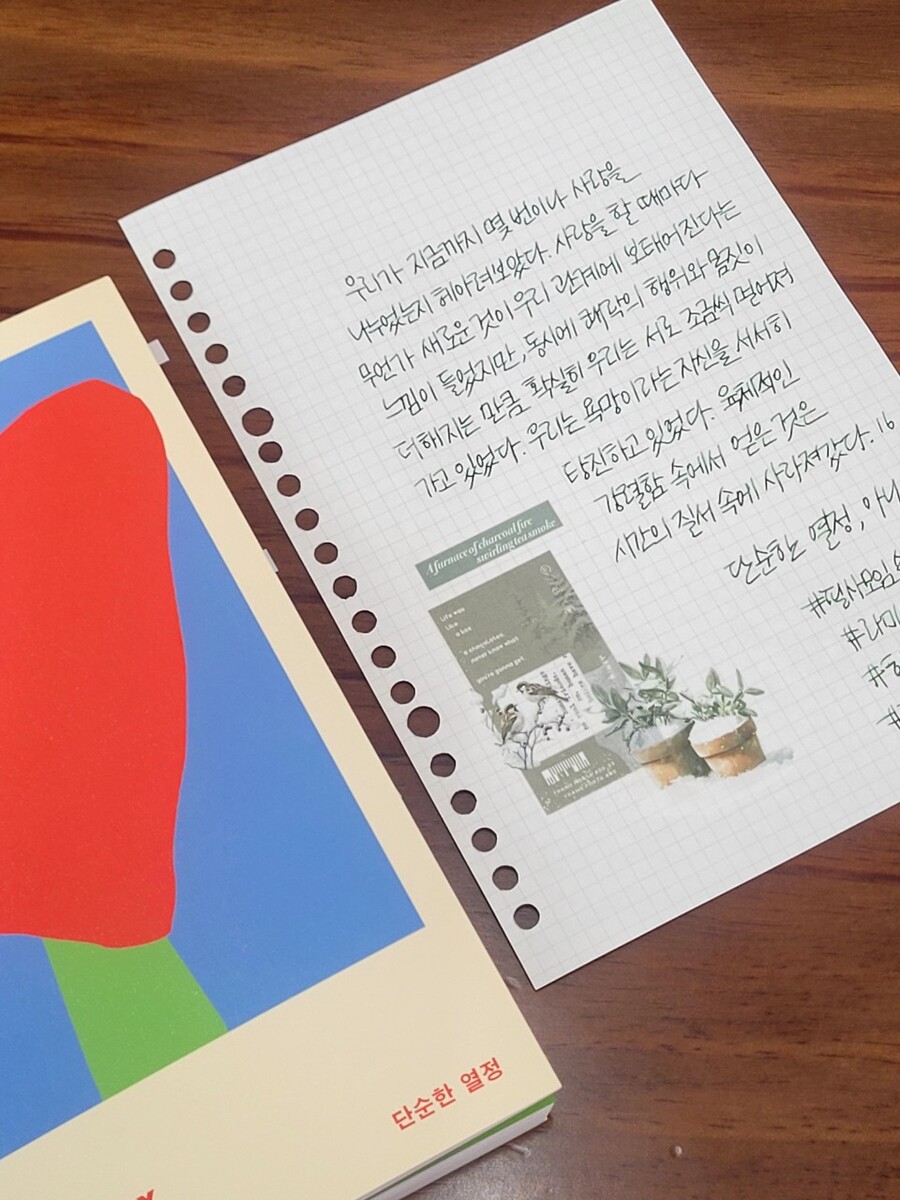 우리가 지금까지 몇 번이나 사랑을
나누었는지 헤아려보았다. 사랑을 할 때마다
무언가 새로운 것이 우리 관계에 보태어진다는
느낌이 들었지만, 동시에 쾌락의 행위와 몸짓이
더해지는 만큼 확실히 우리는 서로 조금씩 멀어져
가고 있었다. 우리는 욕망이라는 자산을 서서히
탕진하고 있었다. 육체적인
강렬함 속에서 얻은 것은
시간의 질서 속에 사라져갔다. 16
단순한 열정, 아니
#필사모임
#라미
#
#
A furnace of charcoal fire
swirling tea smoke
Life was
like
a box
a chocolates,
never know what
you're gonna get
단순한 열정